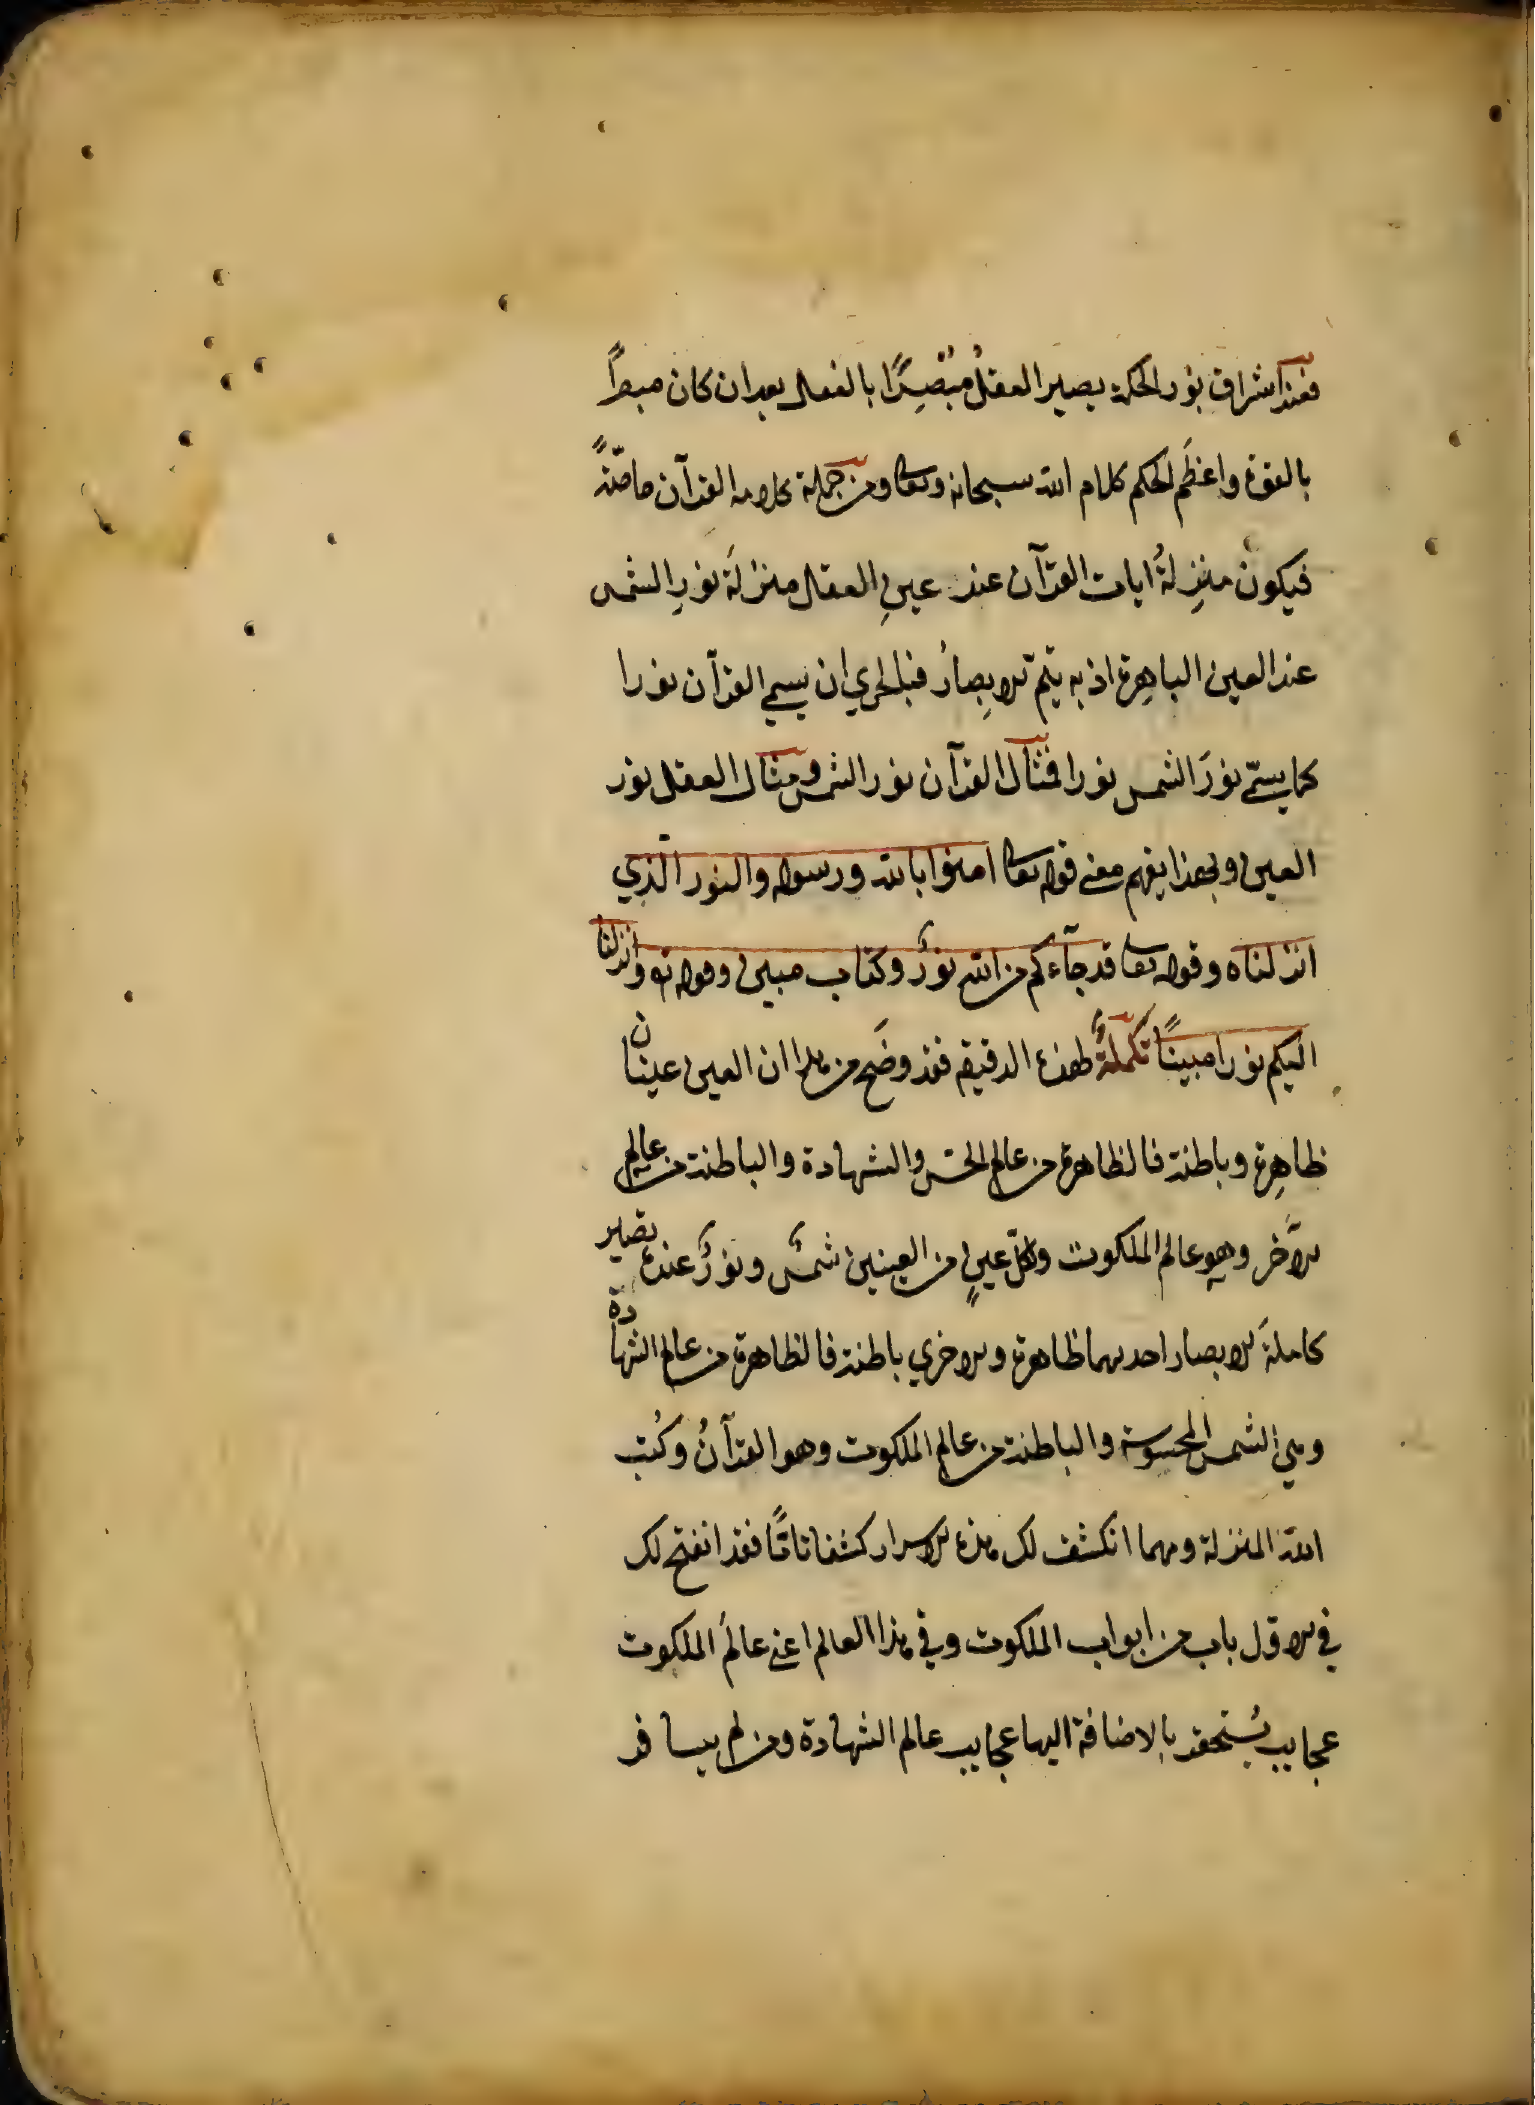 فعند اشراق نور الحكمة يصير العقلُ مُبْصِرًا بالفعل بعد ان كان مبصراً
بالقوة واعظَم الحكم كلام الله سبحانه وتعالى ومن جملة كلامه القرآن خاصّةً
فيكون منزِلةُ ايات القرآن عند عينِ العقل منزلَة نورِ الشمس
عند العين الباهِرة اذ به يتم الابِصارُ فبالحري ان يسمي القرآن نورا
كما يسمّي نورَ الشمس نورا فمثال القرآن نور الشمس ومثال العقل نور
العين وبهذا يفهم معني قوله تعالى امنوا بالله ورسوله والنور الّذي
انزلناه وقوله تعالى قد جآءكم من الله نورٌ وكتاب مبين وقوله تع وانزلنا
اليكم نورا مبينًا تكملةٌ لهذه الدقيقة فقد وضَح من هذا ان العين عينان
ظاهِرة وباطنة فالظاهرة من عالم الحسّ والشهادة والباطنة من عالم
الآخر وهو عالم الملكوت ولكلّ عينٍ من العينين شمسٌ ونورٌ عنده تصير
كاملةَ الابصار احديهما ظاهرة والاخري باطنة فالظاهرة من عالم الشهادة
وهي الشمس المحسوسة والباطنة من عالم الملكوت وهو القرآنُ وكُتب
اللهِ المنزلة ومهما انكشف لك هذه الاسرار كشفا تامًّا فقد انفتح لك
في الاوّل باب من ابواب الملكوت وفي هذا العالم اعني عالَم الملكوت
عجايب يُستحقر بالاضافة اليها عجايب عالم الشهادة ومن لم يسافر